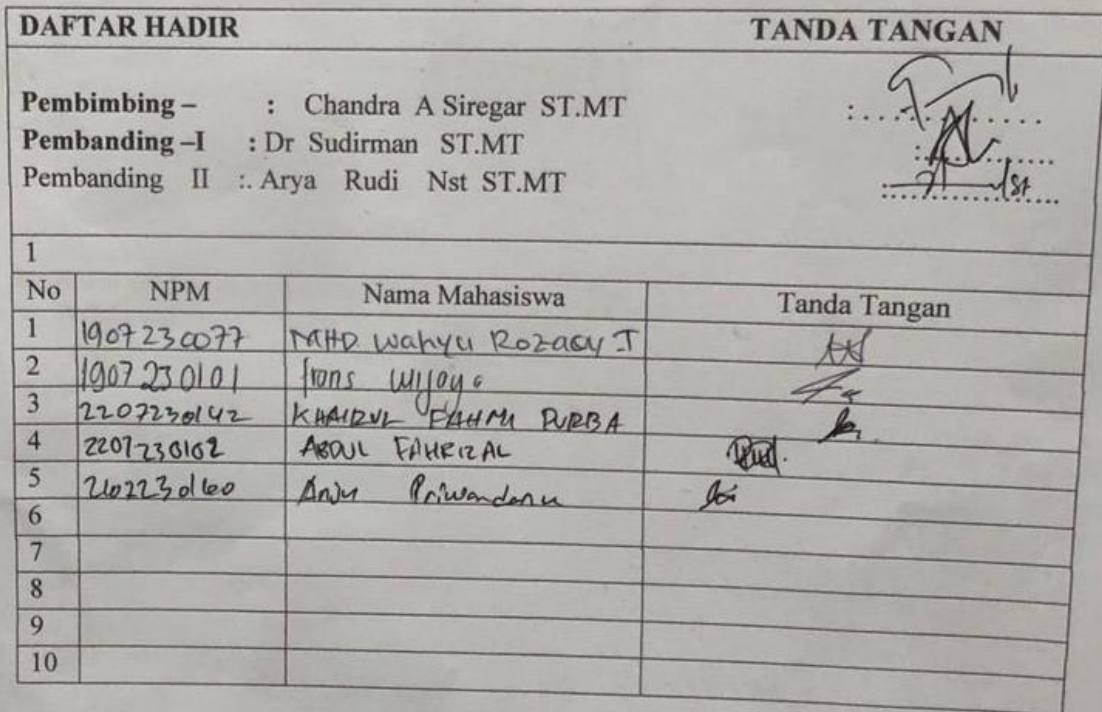 DAFTAR HADIR TANDA TANGAN
Pembimbing – : Chandra A Siregar ST.MT :..............
Pembanding –I : Dr Sudirman ST.MT :..............
Pembanding II :. Arya Rudi Nst ST.MT :..............
1
No NPM Nama Mahasiswa Tanda Tangan
1 1907230077 MHD Wahyu Rozasy T
2 1907230101 Irons Wijaya
3 2207230142 KHAIRUL FAHMI PURBA
4 2207230162 ABDUL FAHRIZAL
5 Anju Priwandanu
6
7
8
9
10